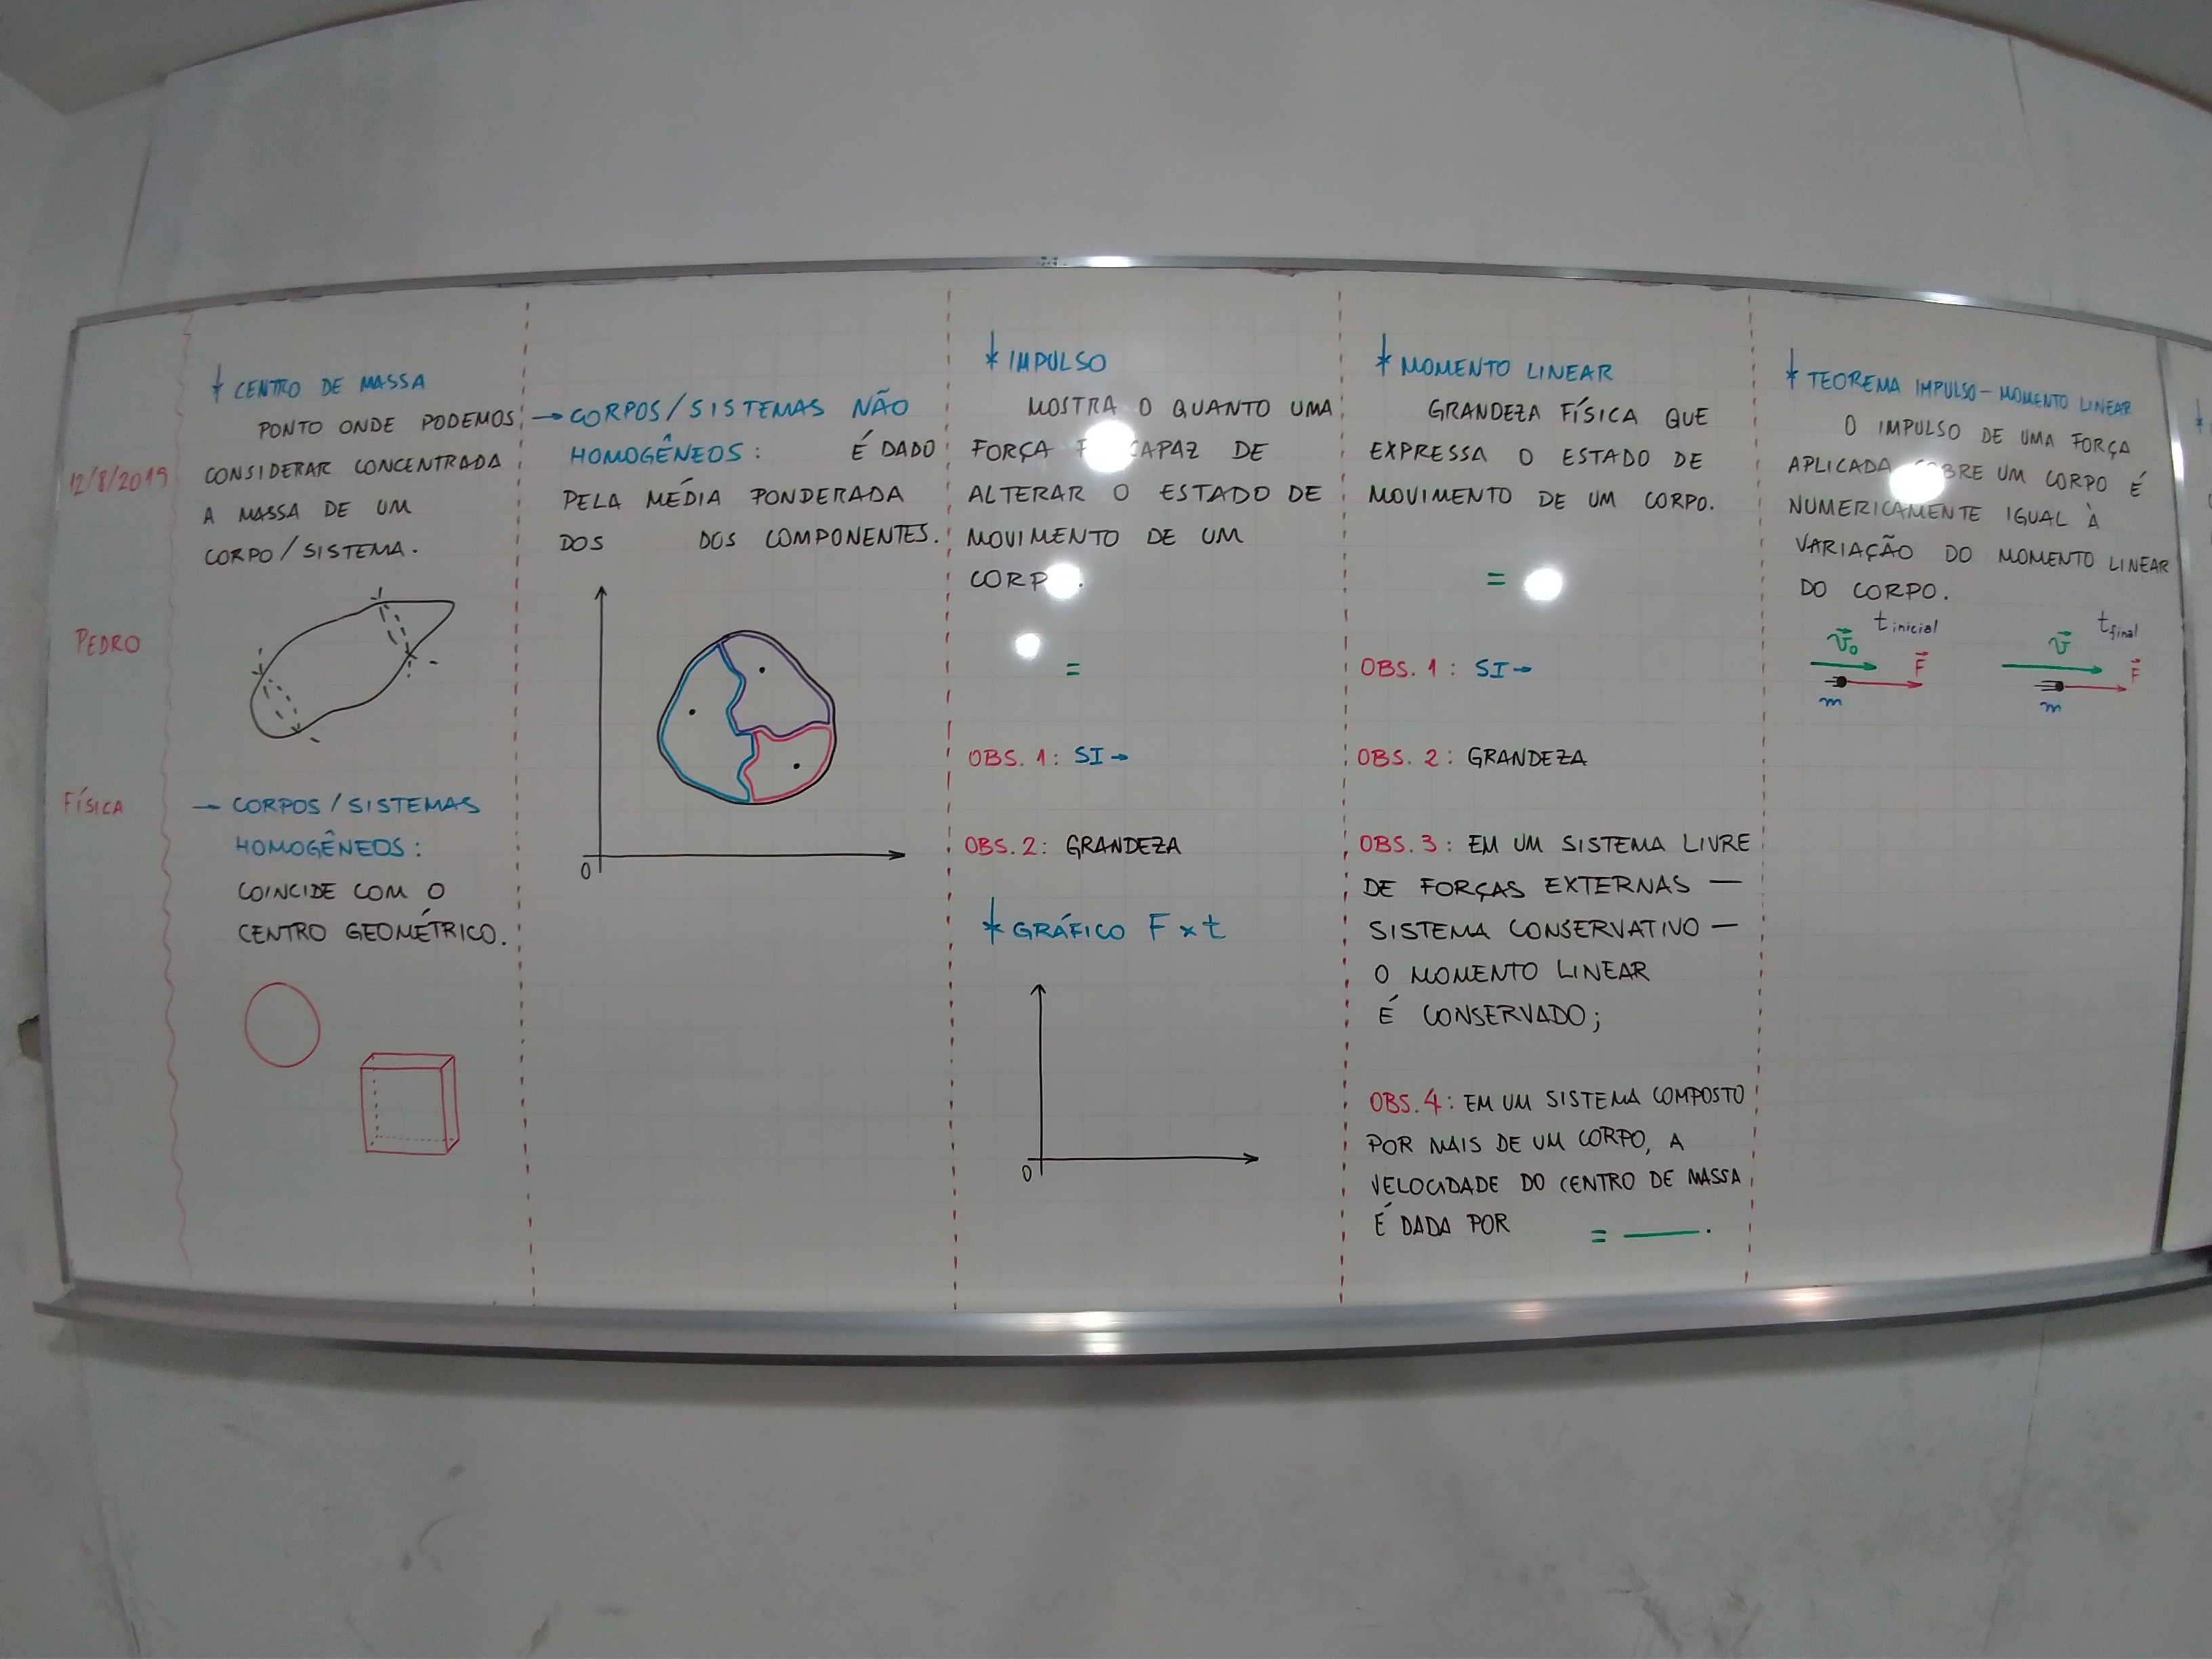 12/8/2019
PEDRO
FÍSICA
* CENTRO DE MASSA
PONTO ONDE PODEMOS
CONSIDERAR CONCENTRADA
A MASSA DE UM
CORPO/SISTEMA.
→ CORPOS/SISTEMAS
HOMOGÊNEOS:
COINCIDE COM O
CENTRO GEOMÉTRICO.
→ CORPOS/SISTEMAS NÃO
HOMOGÊNEOS: É DADO
PELA MÉDIA PONDERADA
DOS DOS COMPONENTES.
0
* IMPULSO
MOSTRA O QUANTO UMA
FORÇA CAPAZ DE
ALTERAR O ESTADO DE
MOVIMENTO DE UM
CORPO.
=
OBS. 1: SI →
OBS. 2: GRANDEZA
* GRÁFICO F x t
0
* MOMENTO LINEAR
GRANDEZA FÍSICA QUE
EXPRESSA O ESTADO DE
MOVIMENTO DE UM CORPO.
=
OBS. 1: SI →
OBS. 2: GRANDEZA
OBS. 3: EM UM SISTEMA LIVRE
DE FORÇAS EXTERNAS —
SISTEMA CONSERVATIVO —
O MOMENTO LINEAR
É CONSERVADO;
OBS. 4: EM UM SISTEMA COMPOSTO
POR MAIS DE UM CORPO, A
VELOCIDADE DO CENTRO DE MASSA
É DADA POR = ——.
* TEOREMA IMPULSO - MOMENTO LINEAR
O IMPULSO DE UMA FORÇA
APLICADA SOBRE UM CORPO É
NUMERICAMENTE IGUAL À
VARIAÇÃO DO MOMENTO LINEAR
DO CORPO.
t inicial t final
v⃗₀ F⃗ v⃗ F⃗
m m